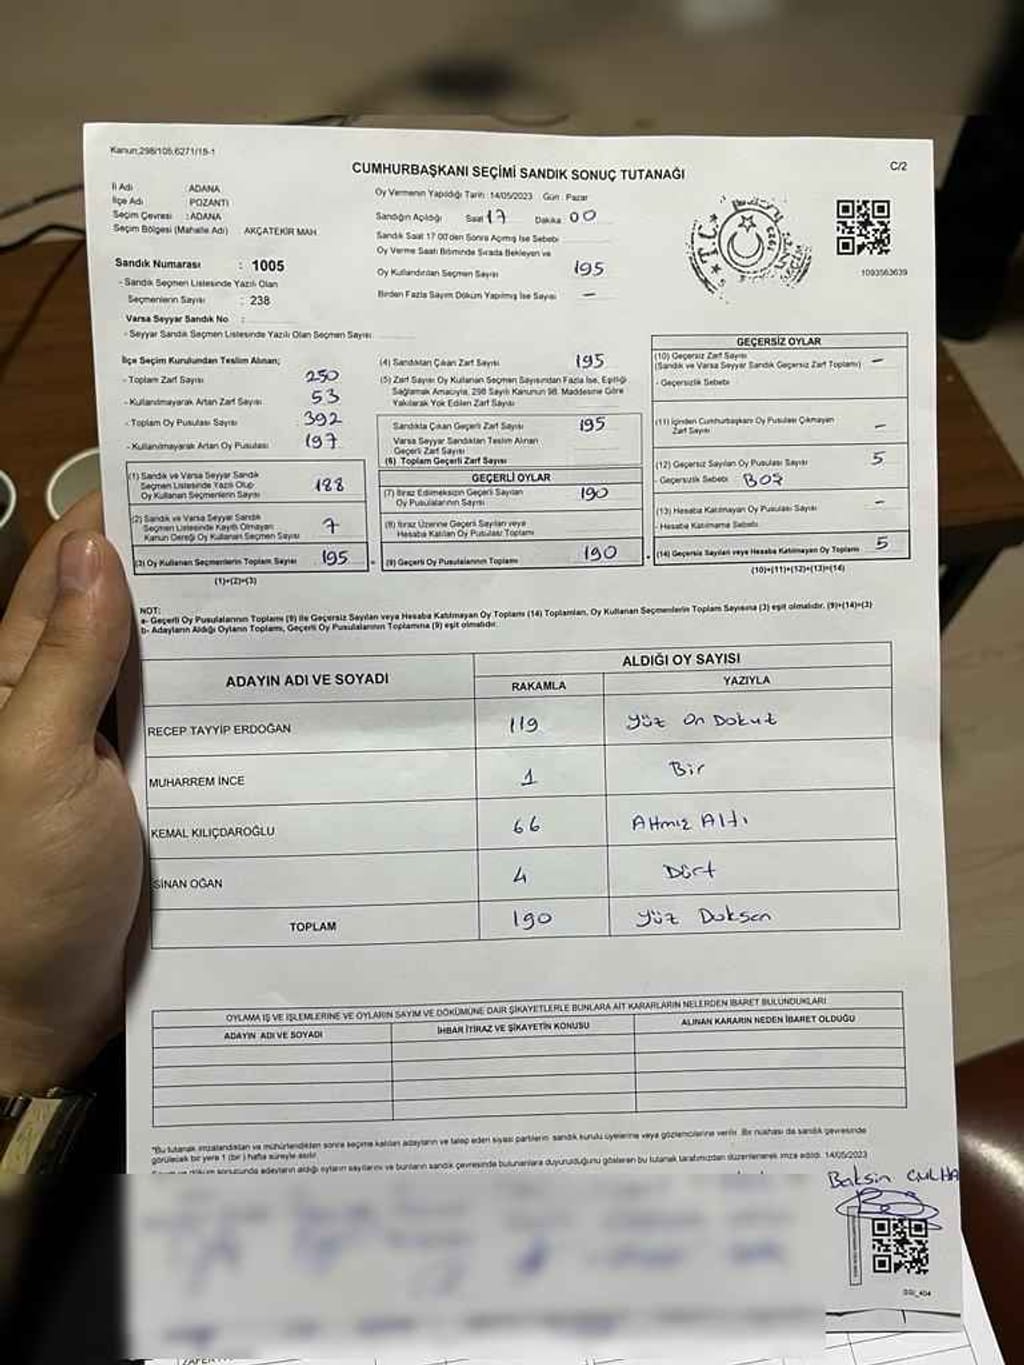 Kanun:298/105,6271/15-1
C/2
CUMHURBAŞKANI SEÇİMİ SANDIK SONUÇ TUTANAĞI
İl Adı : ADANA
İlçe Adı : POZANTI
Seçim Çevresi : ADANA
Seçim Bölgesi (Mahalle Adı) AKÇATEKİR MAH.
Sandık Numarası : 1005
- Sandık Seçmen Listesinde Yazılı Olan
Seçmenlerin Sayısı : 238
Varsa Seyyar Sandık No :
- Seyyar Sandık Seçmen Listesinde Yazılı Olan Seçmen Sayısı
Oy Vermenin Yapıldığı Tarih :14/05/2023 Gün : Pazar
Sandığın Açıldığı Saat 17 Dakika 00
Sandık Saat 17:00'den Sonra Açılmış İse Sebebi
Oy Verme Saati Bitiminde Sırada Bekleyen ve
Oy Kullandırılan Seçmen Sayısı 195
Birden Fazla Sayım Döküm Yapılmış İse Sayısı –
1093563639
İlçe Seçim Kurulundan Teslim Alınan;
- Toplam Zarf Sayısı : 250
- Kullanılmayarak Artan Zarf Sayısı : 53
- Toplam Oy Pusulası Sayısı : 392
- Kullanılmayarak Artan Oy Pusulası : 197
(1) Sandık ve Varsa Seyyar Sandık
Seçmen Listesinde Yazılı Olup
Oy Kullanan Seçmenlerin Sayısı 188
(2) Sandık ve Varsa Seyyar Sandık
Seçmen Listesinde Kayıtlı Olmayan
Kanun Gereği Oy Kullanan Seçmen Sayısı 7
(3) Oy Kullanan Seçmenlerin Toplam Sayısı 195
(1)+(2)=(3)
(4) Sandıktan Çıkan Zarf Sayısı 195
(5) Zarf Sayısı Oy Kullanan Seçmen Sayısından Fazla İse, Eşitliği
Sağlamak Amacıyla, 298 Sayılı Kanunun 98. Maddesine Göre
Yakılarak Yok Edilen Zarf Sayısı
Sandıkta Çıkan Geçerli Zarf Sayısı 195
Varsa Seyyar Sandıktan Teslim Alınan
Geçerli Zarf Sayısı
(6) Toplam Geçerli Zarf Sayısı
GEÇERLİ OYLAR
(7) İtiraz Edilmeksizin Geçerli Sayılan
Oy Pusulalarının Sayısı 190
(8) İtiraz Üzerine Geçerli Sayılan veya
Hesaba Katılan Oy Pusulası Toplamı
(9) Geçerli Oy Pusulalarının Toplamı 190
GEÇERSİZ OYLAR
(10) Geçersiz Zarf Sayısı
(Sandık ve Varsa Seyyar Sandık Geçersiz Zarf Toplamı) –
- Geçersizlik Sebebi
(11) İçinden Cumhurbaşkanı Oy Pusulası Çıkmayan
Zarf Sayısı –
(12) Geçersiz Sayılan Oy Pusulası Sayısı 5
- Geçersizlik Sebebi BOŞ
(13) Hesaba Katılmayan Oy Pusulası Sayısı –
- Hesaba Katılmama Sebebi
(14) Geçersiz Sayılan veya Hesaba Katılmayan Oy Toplamı 5
(10)+(11)+(12)+(13)=(14)
NOT:
a- Geçerli Oy Pusulalarının Toplamı (9) ile Geçersiz Sayılan veya Hesaba Katılmayan Oy Toplamı (14) Toplamları, Oy Kullanan Seçmenlerin Toplam Sayısına (3) eşit olmalıdır. (9)+(14)=(3)
b- Adayların Aldığı Oyların Toplamı, Geçerli Oy Pusulalarının Toplamına (9) eşit olmalıdır.
ADAYIN ADI VE SOYADI
ALDIĞI OY SAYISI
RAKAMLA YAZIYLA
RECEP TAYYİP ERDOĞAN 119 Yüz On Dokuz
MUHARREM İNCE 1 Bir
KEMAL KILIÇDAROĞLU 66 Altmış Altı
SİNAN OĞAN 4 Dört
TOPLAM 190 Yüz Doksan
OYLAMA İŞ VE İŞLEMLERİNE VE OYLARIN SAYIM VE DÖKÜMÜNE DAİR ŞİKAYETLERLE BUNLARA AİT KARARLARIN NELERDEN İBARET BULUNDUKLARI
ADAYIN ADI VE SOYADI İHBAR İTİRAZ VE ŞİKAYETİN KONUSU ALINAN KARARIN NEDEN İBARET OLDUĞU
*Bu tutanak imzalandıktan ve mühürlendikten sonra seçime katılan adayların ve talep eden siyasi partilerin sandık kurulu üyelerine veya gözlemcilerine verilir. Bir nüshası da sandık çevresinde
görülecek bir yere 1 (bir) hafta süreyle asılır.
döküm sonucunda adayların aldığı oyların sayılarını ve bunların sandık çevresinde bulunanlara duyurulduğunu gösteren bu tutanak tarafımızdan düzenlenerek imza edildi. 14/05/2023